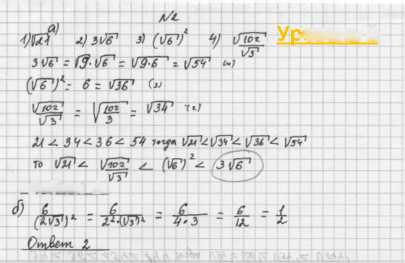 №2
а)
1) √21 2) 3√6 3) (√6)² 4) √102/√3
3√6 = √9·√6 = √9·6 = √54
(√6)² = 6 = √36
√102/√3 = √102/3 = √34
21 < 34 < 36 < 54 тогда √21 < √34 < √36 < √54
то √21 < √102/√3 < (√6)² < 3√6
б) 6/(2√3)² = 6/2²·(√3)² = 6/4·3 = 6/12 = 1/2
Ответ 2